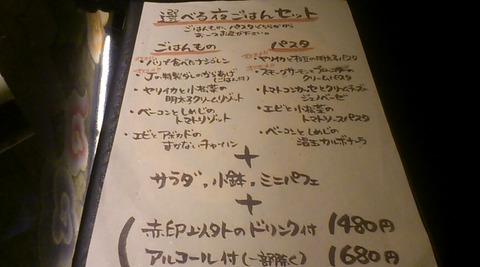 選べる夜ごはんセット
ごはんもの、パスタどちらから
お一つお選び下さい。
ごはんもの
・バリで食べたナシゴレン
・J's特製ダレのからあげ(ごはん付)
・ヤリイカと小松菜の
明太クリームリゾット
・ベーコンとしめじの
トマトリゾット
・エビとアボカドの
チャーハン
パスタ
・ヤリイカと の明太子パスタ
・スモークサーモンと の
クリームパスタ
・トマトコンカッセとクリームチーズの
ジェノベーゼ
・エビと小松菜の
トマトソースパスタ
・ベーコンとしめじの
温玉カルボナーラ
+
サラダ、小鉢、ミニパフェ
+
赤印以外のドリンク付 1480円
アルコール付(一部除く) 1680円